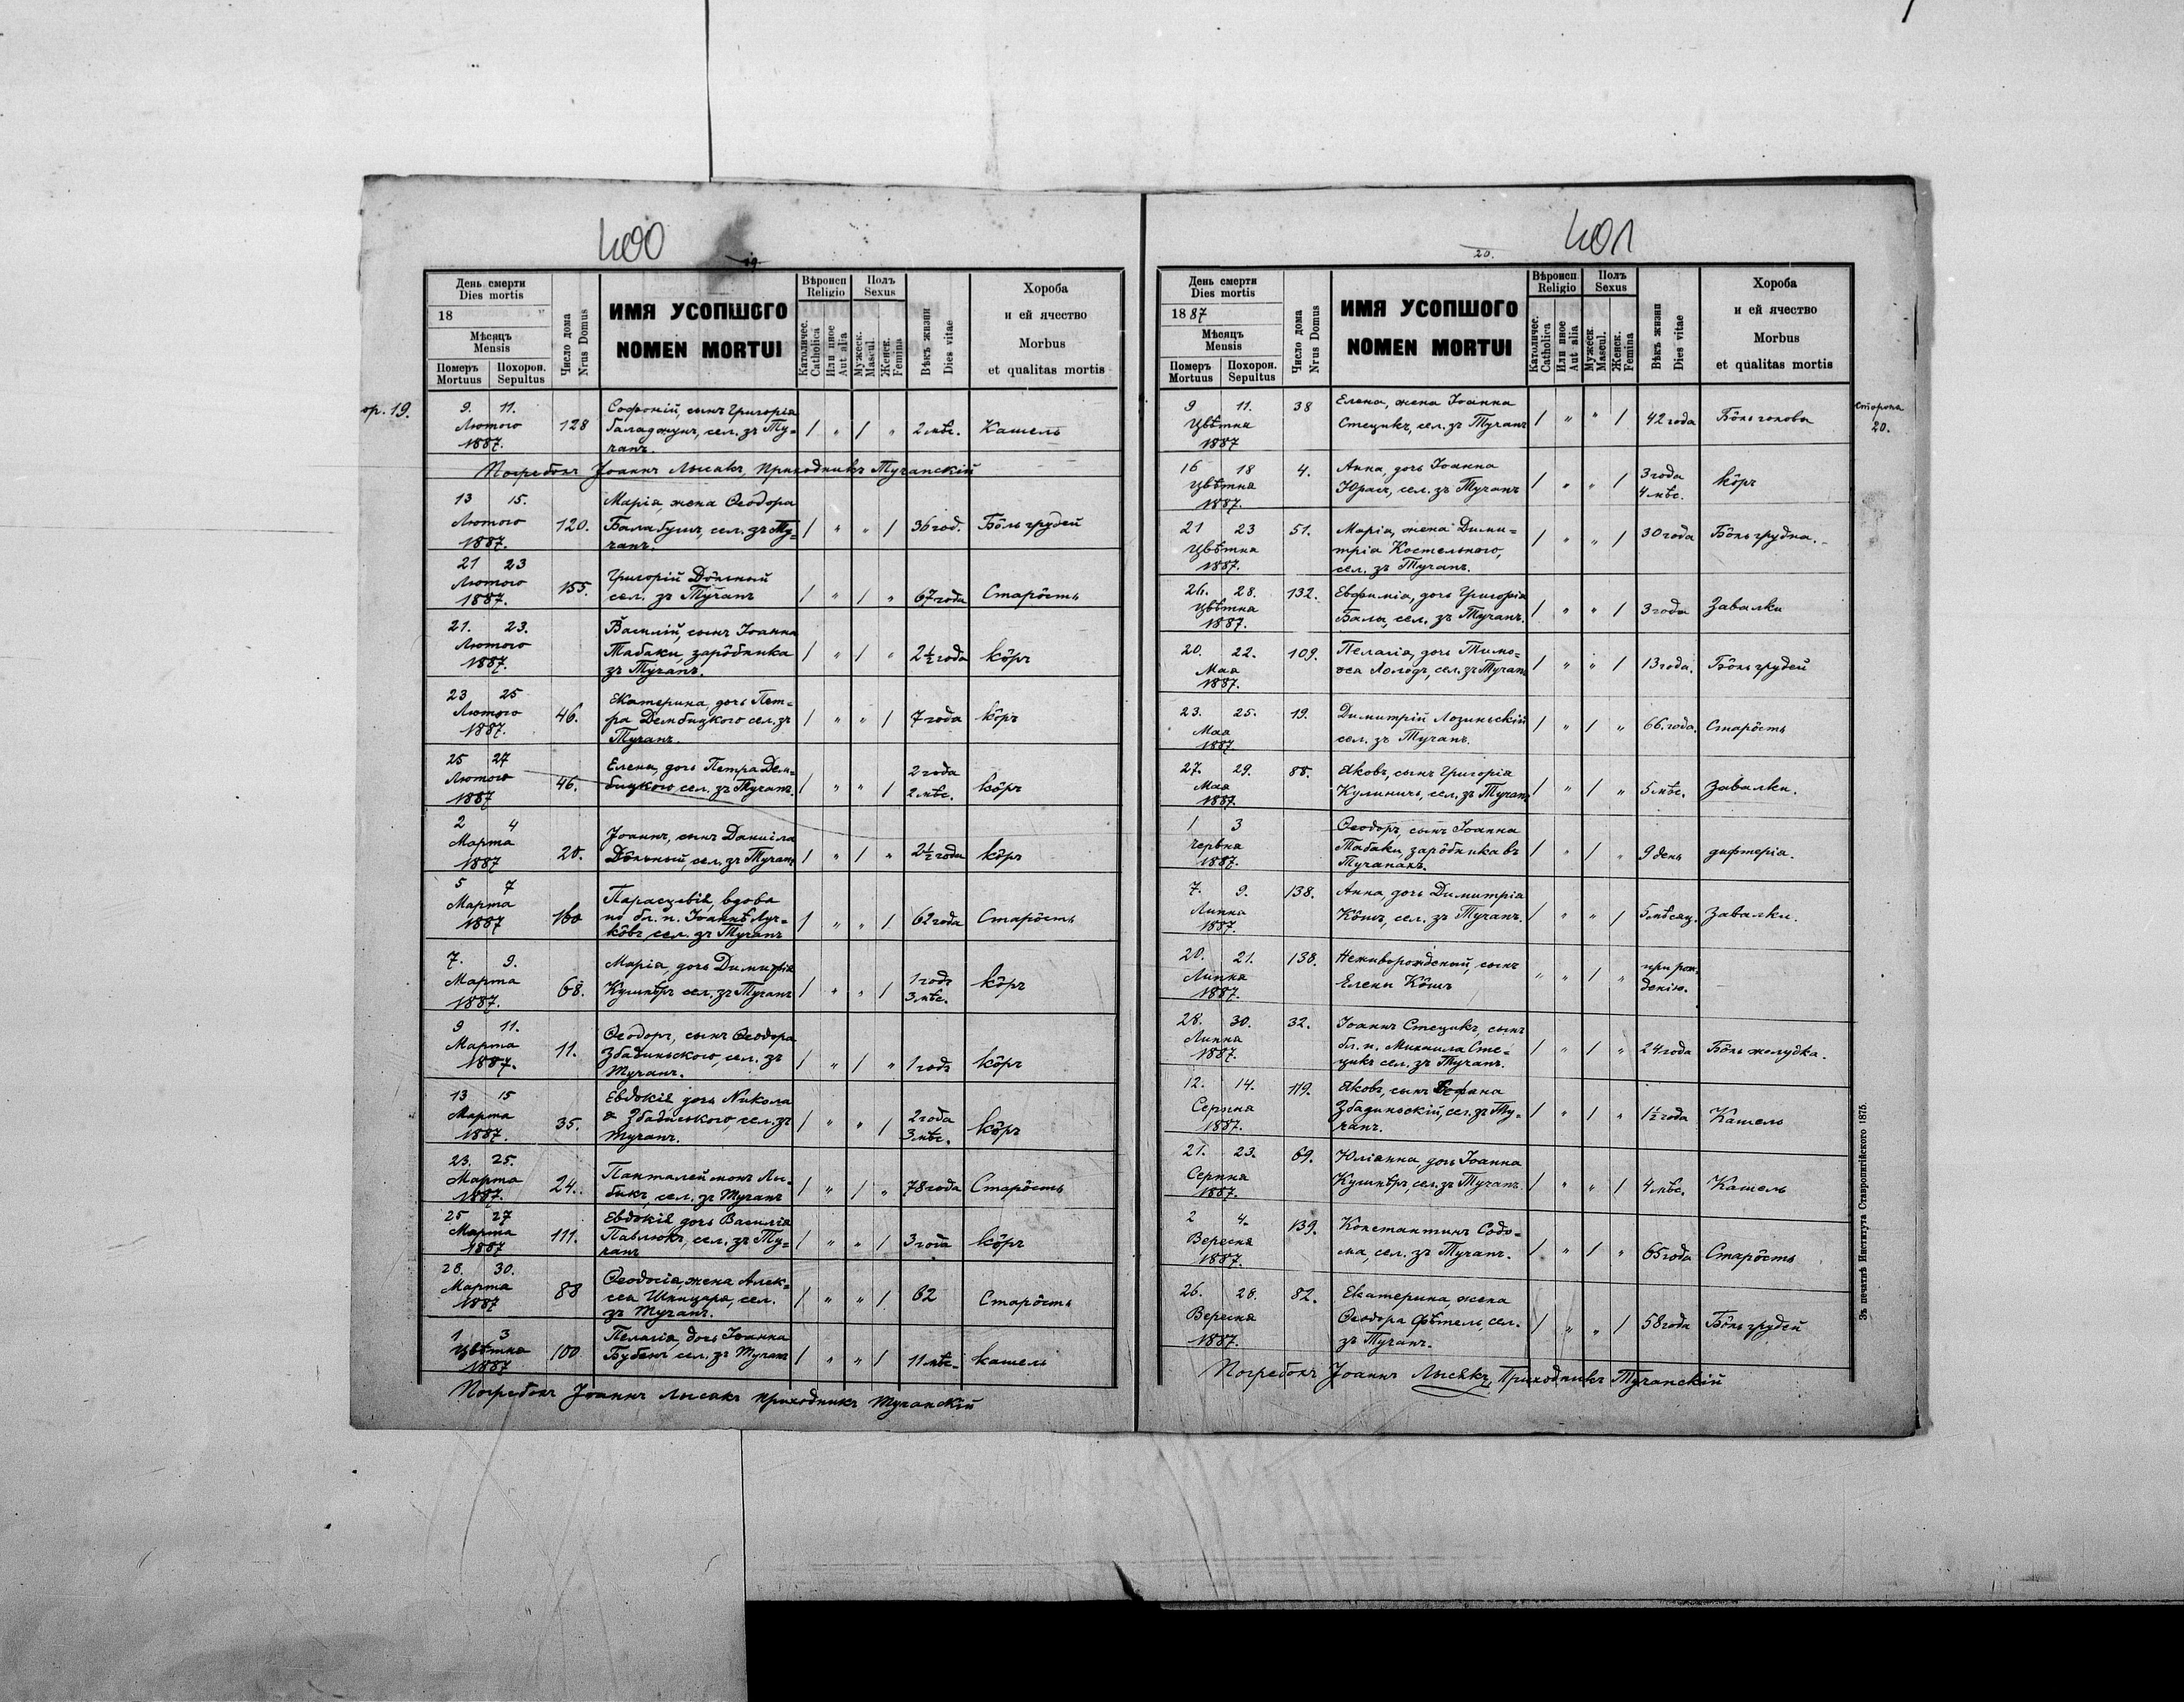 400
19
День смерти
Dies mortis
18 "
Мѣсяць
Mensis
Померъ
Mortuus
Похорон.
Sepultus
Число дома
Nrus Domus
ИМЯ УСОПШОГО
NOMEN MORTUI
Вѣроисп
Religio
Католичес.
Catholica
Или иное
Aut alia
Полъ
Sexus
Мужеск.
Mascul.
Женск.
Femina
Вѣкъ жизни
Dies vitae
Хороба
и ей ячество
Morbus
et qualitas mortis
ор. 19.
9. 11.
Лютого
1887.
128
Софроній, сынъ Григорія
Баладжунъ, сел. зъ Ту=
чапъ.
/ " / "
2 мѣс.
Кашель
Погребокъ Іоаннъ Лысакъ, приходникъ Тучапскій
13 15.
Лютого
1887.
120.
Марія, жена Ѳеодора
Балабушъ, сел. зъ Ту=
чапъ.
/ " " /
36 год.
Бôль грудей
21 23
Лютого
1887.
155.
Григорій Дôльный
сел. зъ Тучапъ
/ " / "
67 года
Старôсть
21. 23.
Лютого
1887.
Василій, сынъ Іоанна
Табаки, зарôбника
зъ Тучапъ.
/ " / "
2½ года
кôръ
23 25
Лютого
1887.
46.
Екатерина, дочь Пет=
ра Дембицкого сел. зъ
Тучапъ.
/ " " /
7 года
кôръ
25 27
Лютого
1887
46.
Елена, дочь Петра Дем=
бицкого сел. зъ Тучапъ.
/ " " /
2 года
2 мѣс.
кôръ
2 4
Марта
1887
20.
Іоаннъ, сынъ Даніила
Дôльный, сел. зъ Тучапъ
/ " / "
2½ года
кôръ
5 7
Марта
1887
160
Парасцевія, вдова
по бл. п. Іоаннѣ Луч=
кôвъ, сел. зъ Тучапъ
/ " " /
62 года
Старôсть
7. 9.
Марта
1887.
68.
Марія, дочь Димитрія
Кушнѣръ сел. зъ Тучапъ
/ " " /
1 годъ
3 мѣс.
кôръ
9 11.
Марта
1887.
11.
Ѳеодоръ, сынъ Ѳеодора
Збадиньского, сел. зъ
Тучапъ.
/ " / "
1 годъ
кôръ
13 15
Марта
1887.
35.
Евдокія дочь Никола
Збадиського, сел. зъ
Тучапъ.
/ " " /
2 года
3 мѣс.
кôръ
23. 25.
Марта
1887.
24.
Панталеймонъ Ли=
бикъ, сел. зъ Тучапъ
/ " / "
78 года
Старôсть
25 27
Марта
1887
111.
Евдокія, дочь Василія
Павлюкъ, сел. зъ Ту=
чапъ
/ " " /
3 года
кôръ
28. 30.
Марта
1887
88
Ѳеодосія, жена Алек=
сея Шпицара, сел.
зъ Тучапъ.
/ " " /
62
Старôсть
1 3
Цвѣтна
1887
100
Пелагія, дочь Іоанна
Бубенъ сел. зъ Тучапъ
/ " " /
11 мѣс.
кашель
Погребокъ Іоаннъ Лысакъ приходникъ Тучапскій
401
20.
День смерти
Dies mortis
1887
Мѣсяць
Mensis
Померъ
Mortuus
Похорон.
Sepultus
Число дома
Nrus Domus
ИМЯ УСОПШОГО
NOMEN MORTUI
Вѣроисп
Religio
Католичес.
Catholica
Или иное
Aut alia
Полъ
Sexus
Мужеск.
Mascul.
Женск.
Femina
Вѣкъ жизни
Dies vitae
Хороба
и ей ячество
Morbus
et qualitas mortis
сторона
20.
9 11.
Цвѣтна
1887
38
Елена, жена Іоанна
Стецикъ, сел. зъ Тучапъ
/ " " /
42 года
Бôль голова
16 18
Цвѣтна
1887.
4.
Анна, дочь Іоанна
Юрагъ, сел. зъ Тучапъ
/ " " /
3 года
4 мѣс.
кôръ
21 23
Цвѣтна
1887.
51.
Марія, жена Дими=
трія Костельного,
сел. зъ Тучапъ.
/ " " /
30 года
Бôль грудна.
26. 28.
Цвѣтна
1887.
132.
Евфимія, дочь Григорія
Бала, сел. зъ Тучапъ.
/ " " /
3 года
Завалки
20. 22.
Мая
1887.
109.
Пелагія, дочь Тимо=
ѳея Лолодъ, сел. зъ Тучапъ
/ " " /
13 года.
Бôль грудей
23. 25.
Мая
1887.
19.
Димитрій Лозиньскій
сел. зъ Тучапъ.
/ " / "
66. года.
Старôсть
27. 29.
Мая
1887.
88.
Яковъ, сынъ Григорія
Кулиничъ, сел. зъ Тучапъ
/ " / "
5 мѣс.
Завалки.
1 3
Червня
1887.
Ѳеодоръ, сынъ Іоанна
Табаки, зарôбника въ
Тучапахъ.
/ " / "
9 день
дифтерія.
7. 9.
Липня
1887.
138.
Анна, дочь Димитрія
Кôшъ, сел. зъ Тучапъ.
/ " " /
5 мѣсяц.
Завалки.
20. 21.
Липня
1887.
138.
Неживорожденый, сынъ
Елены Кôшъ
" " / "
при рож=
денію.
28. 30.
Липня
1887.
32.
Іоаннъ Стецикъ, сынъ
бл. п. Михаила Сте=
цикъ сел. зъ Тучапъ.
/ " / "
24 года
Бôль желудка.
12. 14.
Серпня
1887.
119.
Яковъ, сынъ Стефана
Збадиньскій, сел. зъ Ту=
чапъ.
/ " / "
1½ года
Кашель
21. 23.
Серпня
1887.
69.
Юліанна дочь Іоанна
Кушнѣръ, сел. зъ Тучапъ.
/ " " /
4 мѣс.
Кашель
2 4.
Вересня
1887.
139.
Константинъ Содо=
ма, сел. зъ Тучапъ.
/ " / "
65 года
Старôсть
26. 28.
Вересня
1887.
82.
Екатерина, жена
Ѳеодора Фѣтель, сел.
зъ Тучапъ.
/ " " /
58 года
Бôль грудей
Погребокъ Іоаннъ Лысакъ, Приходникъ Тучапскій
Зъ печатнѣ Института Ставропигійского 1875.